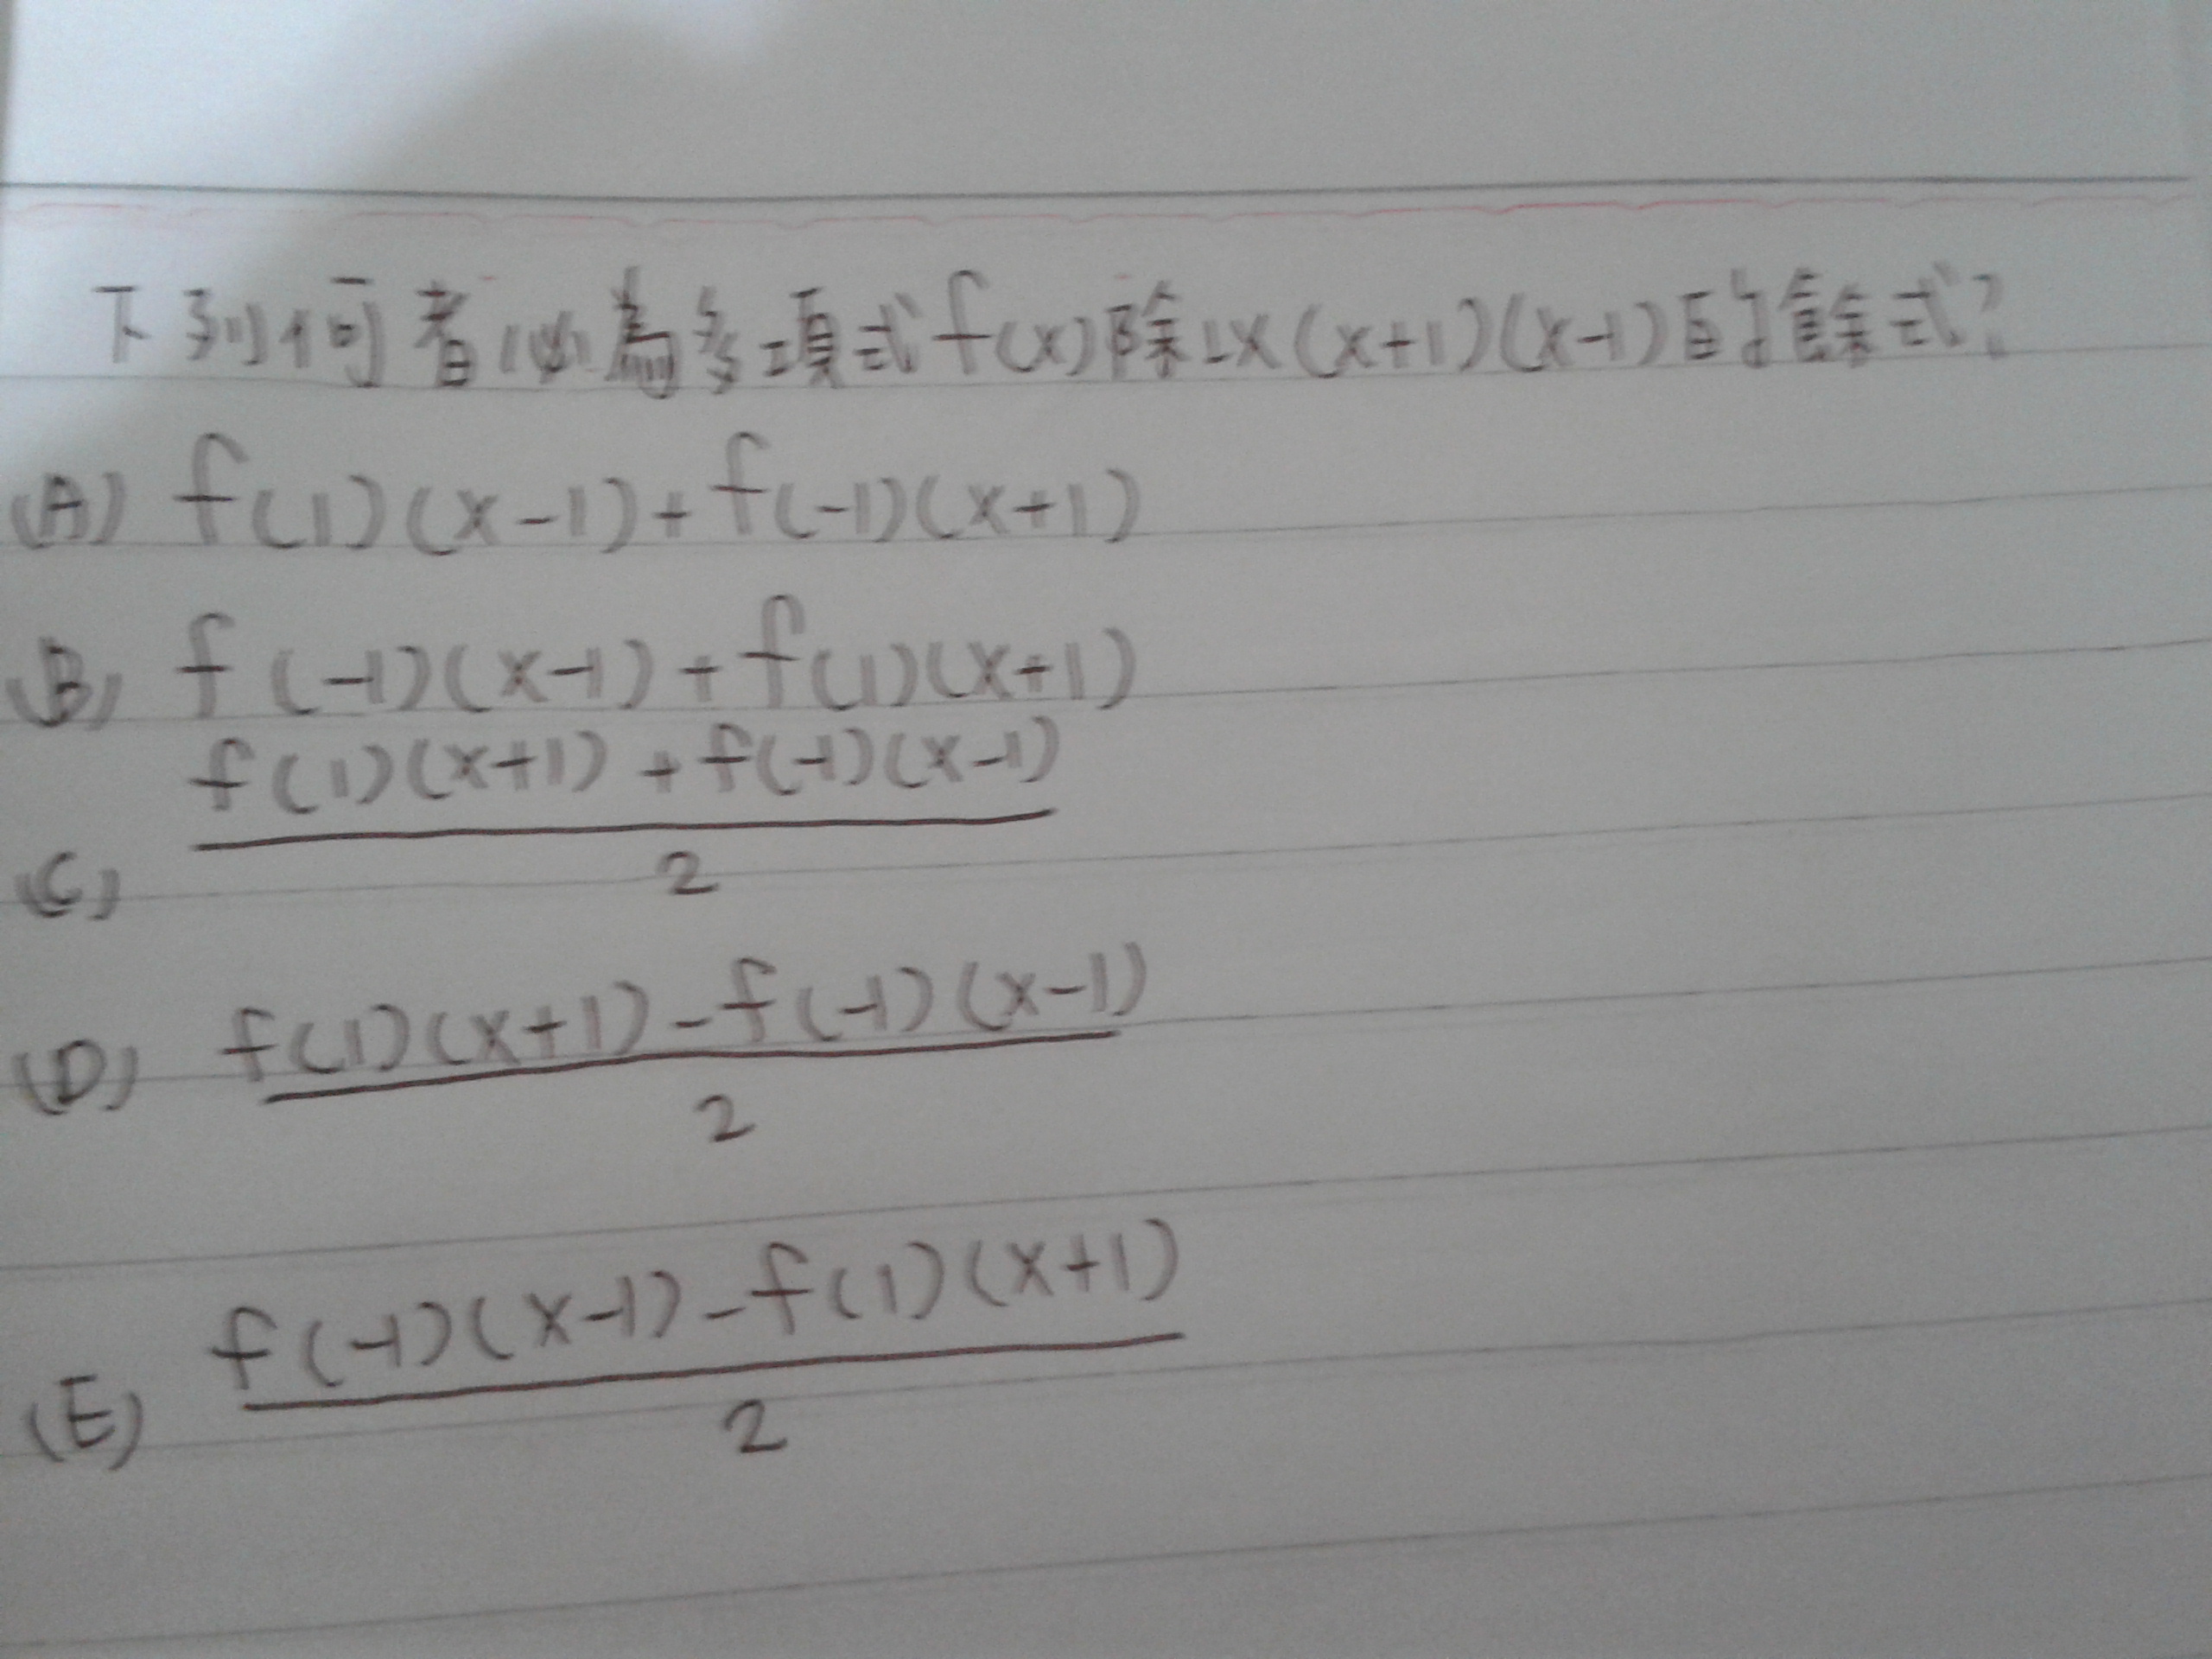 下列何者必為多項式f(x)除以(x+1)(x-1)的餘式?
(A) f(1)(x-1)+f(-1)(x+1)
(B) f(-1)(x-1)+f(1)(x+1)
f(1)(x+1)+f(-1)(x-1)
(C) 2
(D) f(1)(x+1)-f(-1)(x-1)
2
f(-1)(x-1)-f(1)(x+1)
(E) 2